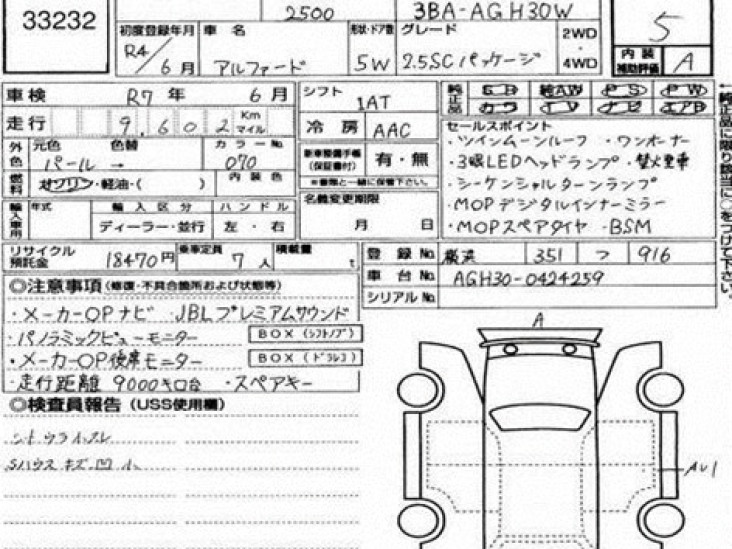 33232
2500
3BA-AGH30W
初度登録年月
R4/6月
車名
アルファード
形状・ドア数
5W
グレード
2.5SCパッケージ
2WD
・
4WD
5
内装
補助評価
A
車検
R7年 6月
走行
9,602
Km
マイル
シフト
1AT
冷房
AAC
純正品
SR
純AW
PS
PW
カワ
TV
ナビ
エアB
外色
元色
パール
色替
→
カラーNo.
070
燃料
ガソリン・軽油・( )
内装色
新車整備手帳
(保証書付)
有・無
※書類と一緒に保管下さい。
セールスポイント
・ツインムーンルーフ ・ワンオーナー
・3眼LEDヘッドランプ ・禁煙車
・シーケンシャルターンランプ
・MOPデジタルインナーミラー
・MOPスペアタイヤ ・BSM
←純正品に限り該当に○をつけて下さい。
輸入車用
年式
輸入区分
ディーラー・並行
ハンドル
左・右
名義変更期限
月 日
リサイクル
預託金
18470円
乗車定員
7人
積載量
t
登録No.
横浜 351 つ 916
車台No.
AGH30-0424259
シリアルNo.
◎注意事項(修復・不具合箇所および状態等)
・メーカーOPナビ JBLプレミアムサウンド
・パノラミックビューモニター
BOX(シフトノブ)
・メーカーOP後席モニター
BOX(ドラレコ)
・走行距離 9000キロ台 ・スペアキー
◎検査員報告(USS使用欄)
シートウライスレ
Sハウスキズ凹小
A
AU1